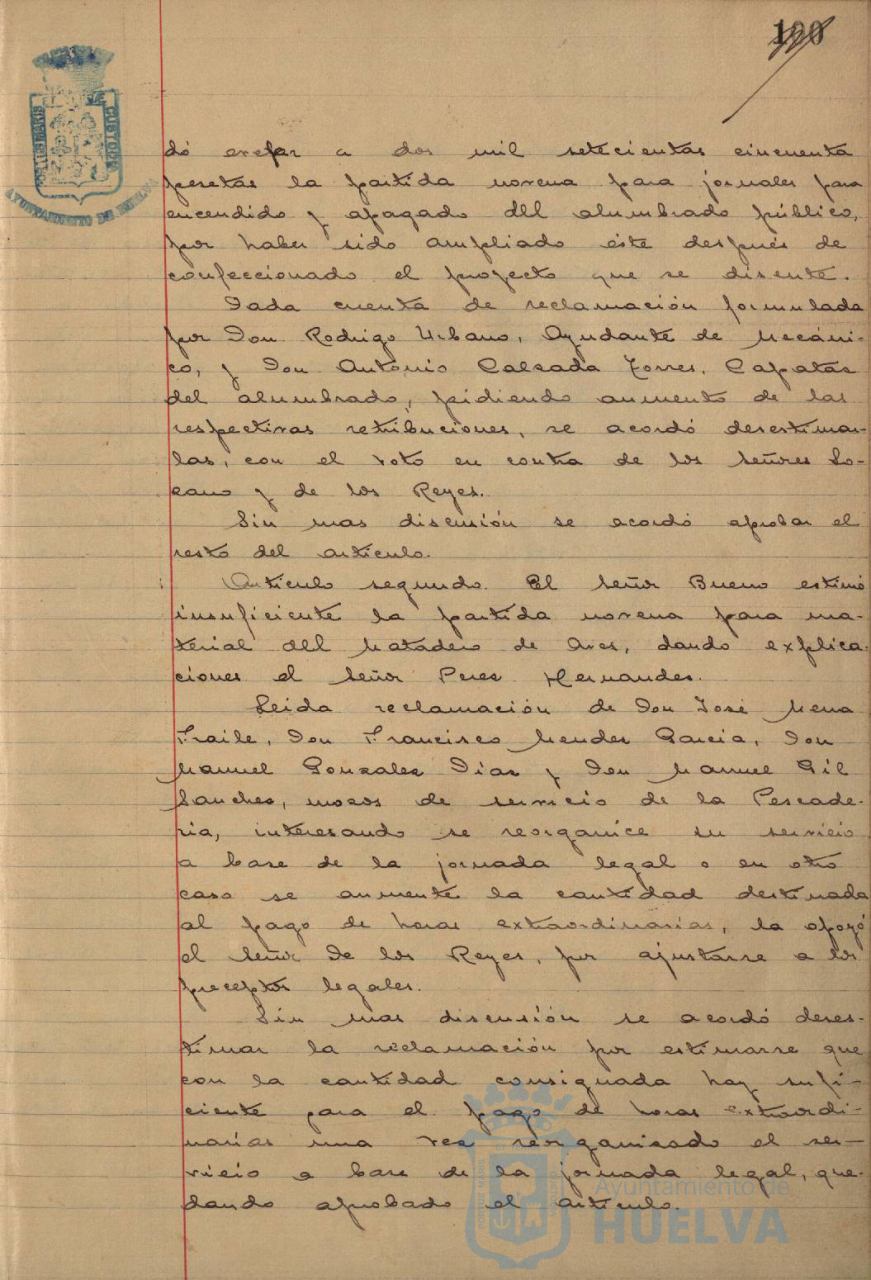 120
PORTUS MARIS
CUSTODIA
AYUNTAMIENTO DE HUELVA
dó a dos mil setecientas cincuenta
pesetas la partida novena para jornales para
encendido y apagado del alumbrado público,
por haber sido ampliado éste después de
confeccionado el proyecto que se discute.
Dada cuenta de reclamación formulada
por Don Rodrigo Urbano, Ayudante de Mecáni-
co, y Don Antonio Calzada Torres, Capataz
del alumbrado, pidiendo aumento de las
respectivas retribuciones, se acordó desestimar-
las, con el voto en contra de los Señores Lo-
cano y de los Reyes.
Sin mas discusión se acordó aprobar el
resto del artículo.
Artículo segundo. El Señor Bueno estimó
insuficiente la partida novena para ma-
terial del Matadero de Aves, dando explica-
ciones el Señor Perez Hernandez.
Leida reclamación de Don José Mena
Fraile, Don Francisco Mendez Garcia, Don
Manuel Gonzalez Diaz y Don Manuel Gil
Sanchez, mozos de servicio de la Pescade-
ria, interesando se reorganice su servicio
a base de la jornada legal o en otro
caso se aumente la cantidad destinada
al pago de horas extraordinarias, la apoyó
el Señor De los Reyes, por ajustarse a los
preceptos legales.
Sin mas discusión se acordó deses-
timar la reclamación por estimarse que
con la cantidad consignada hay sufi-
ciente para el pago de horas extraordi-
narias una vez reorganizado el ser-
vicio a base de la jornada legal, que-
dando aprobado el artículo.
Ayuntamiento de
HUELVA